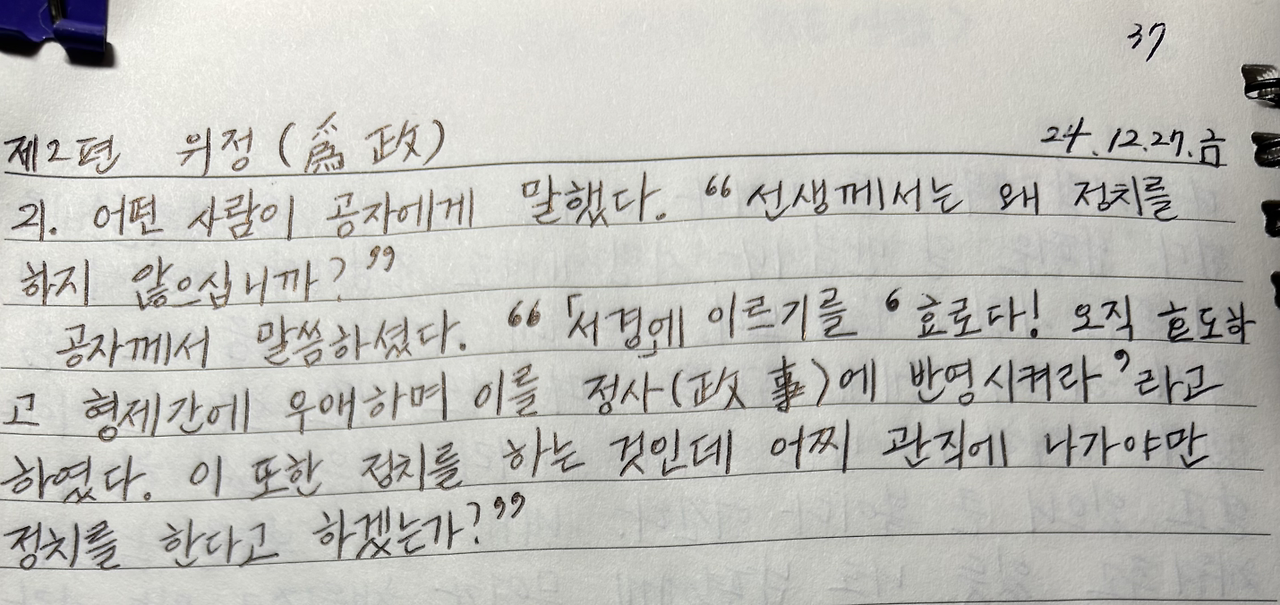 37
제2편 위정(爲政) 24.12.27.금
21. 어떤 사람이 공자에게 말했다. “선생께서는 왜 정치를
하지 않으십니까?”
공자께서 말씀하셨다. “「서경」에 이르기를 ‘효로다! 오직 효도하
고 형제간에 우애하며 이를 정사(政事)에 반영시켜라’라고
하였다. 이 또한 정치를 하는 것인데 어찌 관직에 나가야만
정치를 한다고 하겠는가?”